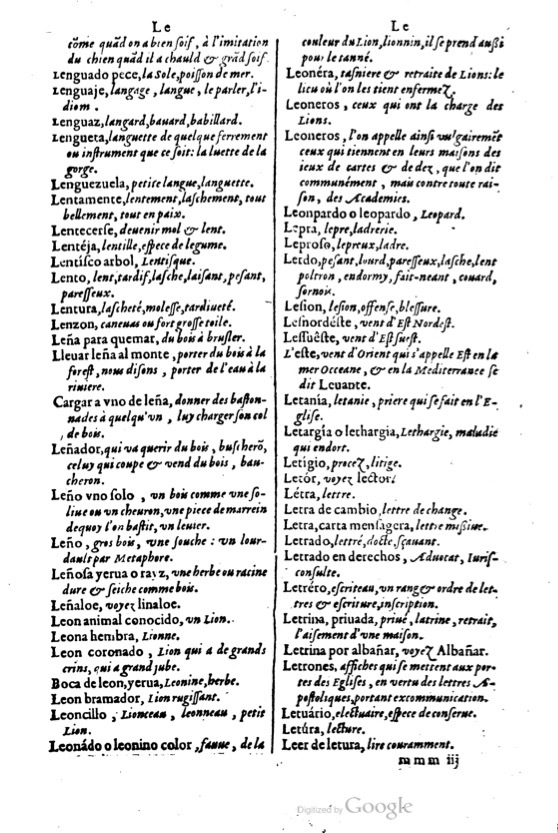 Le
cõme quãd on a bien soif, à l'imitation
du chien quãd il a chauld & grãd soif.
Lenguado pece, la Sole, poisson de mer.
Lenguaje, langage, langue, le parler, l'i-
diom.
Lenguaz, langard, bauard, babillard.
Lengueta, languette de quelque ferrement
ou instrument que ce soit: la luette de la
gorge.
Lenguezuela, petite langue, languette.
Lentamente, lentement, laschement, tout
bellement, tout en paix.
Lentecerse, deuenir mol & lent.
Lentéja, lentille, espece de legume.
Lentísco arbol, Lentisque.
Lento, lent, tardif, lasche, laisant, pesant,
paresseux.
Lentura, lascheté, molesse, tardiueté.
Lenzon, caneuas ou fort grosse toile.
Leña para quemar, du bois à brusler.
Lleuar leña al monte, porter du bois à la
forest, nous disons, porter de l'eau à la
riuiere.
Cargar a vno de leña, donner des baston-
nades à quelqu'vn, luy charger son col
de bois.
Leñador, qui va querir du bois, buscherõ,
celuy qui coupe & vend du bois, bau-
cheron.
Leño vno solo, vn bois comme vne so-
liue ou vn cheuron, vne piece de marrein
dequoy l'on bastit, vn leuier.
Leño, gros bois, vne souche: vn lour-
dault par Metaphore.
Leñosa yerua o rayz, vne herbe ou racine
dure & seiche comme bois.
Leñaloe, voyez linaloe.
Leon animal conocido, vn Lion.
Leona hembra, Lionne.
Leon coronado, Lion qui a de grands
crins, qui a grand jube.
Boca de leon, yerua, Leonine, herbe.
Leon bramador, Lion rugissant.
Leoncillo, Lionceau, leonneau, petit
Lion.
Leonádo o leonino color, fauue, de la
Le
couleur du Lion, lionnin, il se prend aussi
pour le tanné.
Leonéra, tasniere & retraite de Lions: le
lieu où l'on les tient enfermez.
Leoneros, ceux qui ont la charge des
Lions.
Leoneros, l'on appelle ainsi vulgairemẽt
ceux qui tiennent en leurs maisons des
ieux de cartes & de dez, que l'on dit
communément, mais contre toute rai-
son, des Academies.
Leonpardo o leopardo, Leopard.
Lepra, lepre, ladrerie.
Leproso, lepreux, ladre.
Lerdo, pesant, lourd, paresseux, lasche, lent
poltron, endormy, fait-neant, couard,
sornois.
Lesion, lesion, offense, blessure.
Lesnordéste, vent d'Est Nordest.
Lessuêste, vent d'Est suest.
L'este, vent d'Orient qui s'appelle Est en la
mer Oceane, & en la Mediterranee se
dit Leuante.
Letanía, letanie, priere qui se fait en l'E-
glise.
Letargía o lethargia, Lethargie, maladie
qui endort.
Letigio, procez, litige.
Letór, voyez lector.
Létra, lettre.
Letra de cambio, lettre de change.
Letra, carta mensagera, lettre missiue.
Letrado, lettré, docte, sçauant.
Letrado en derechos, Aduocat, Iuris-
consulte.
Letréro, escriteau, un rang & ordre de let-
tres & escriture, inscription.
Letrina, priuada, priué, latrine, retrait,
l'aisement d'vne maison.
Letrina por albañar, voyez Albañar.
Letrones, affiches qui se mettent aux por-
tes des Eglises, en vertu des lettres A-
postoliques, portant excommunication.
Letuário, electuaire, espece de conserue.
Letúra, lecture.
Leer de letura, lire couramment.
mmm iij
Digitized by Google